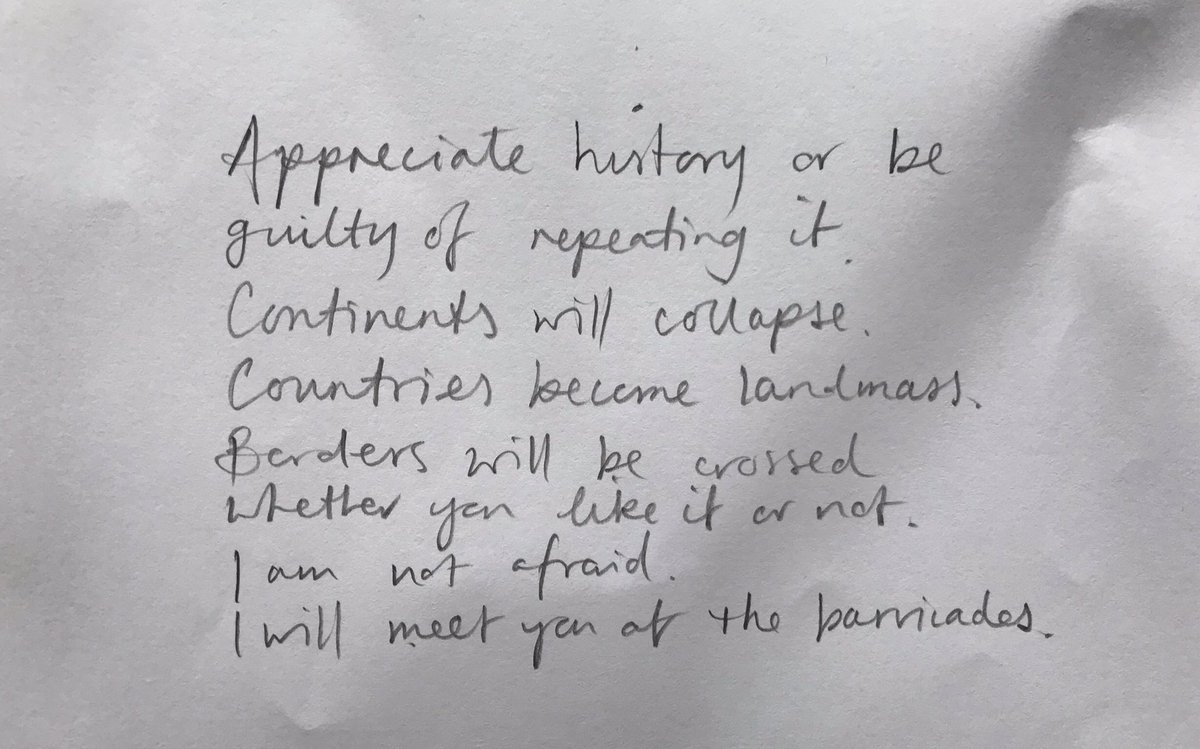 Appreciate history or be
guilty of repeating it.
Continents will collapse.
Countries become landmass.
Borders will be crossed
whether you like it or not.
I am not afraid.
I will meet you at the barricades.